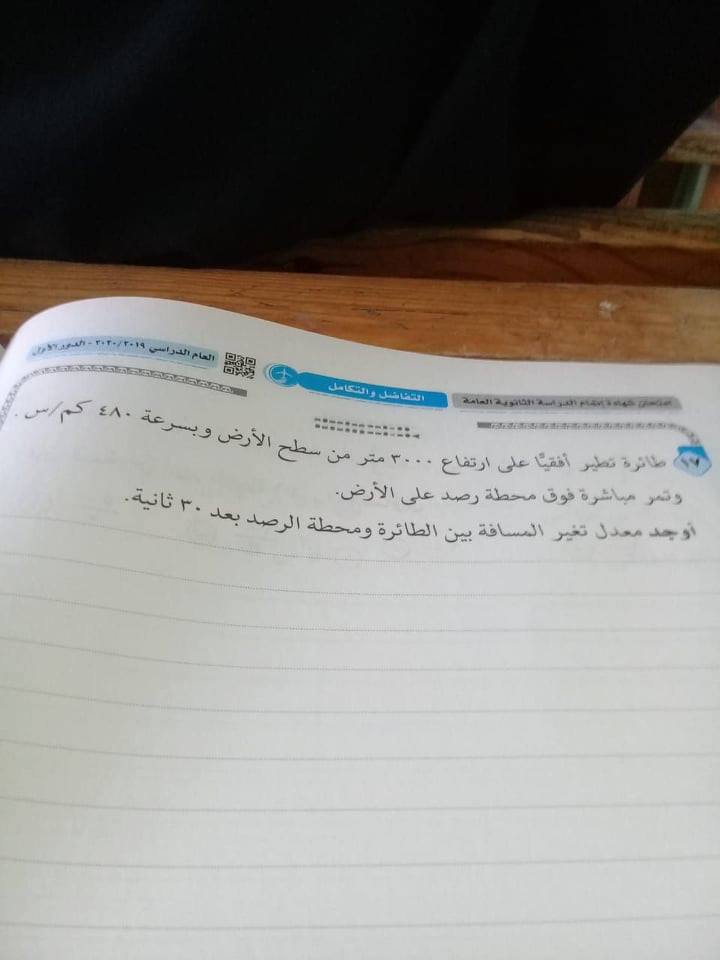 امتحان شهادة إتمام الدراسة الثانوية العامة
التفاضل والتكامل
العام الدراسي ٢٠٢٠/٢٠١٩ - الدور الأول
١٧ طائرة تطير أفقيًا على ارتفاع ٣٠٠٠ متر من سطح الأرض وبسرعة ٤٨٠ كم/س .
وتمر مباشرة فوق محطة رصد على الأرض.
أوجد معدل تغير المسافة بين الطائرة ومحطة الرصد بعد ٣٠ ثانية.